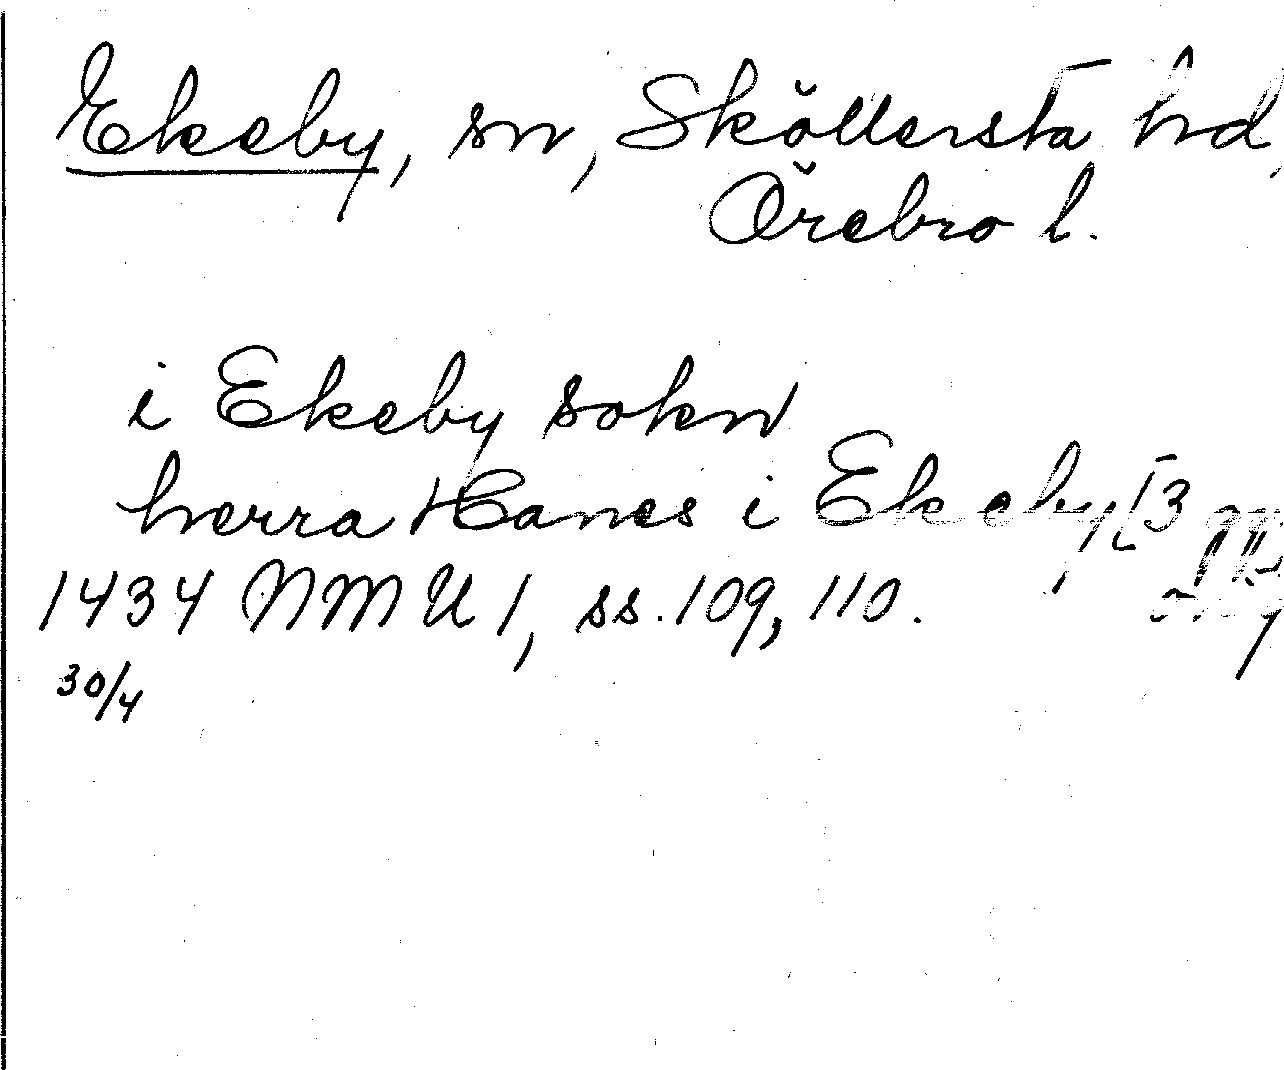 Ekeby, sn, Sköllersta hd,
Örebro l.
i Ekeby sokn
herra Hanes i Ekeby [3 ggr]
1434 NMU 1, ss. 109, 110.
30/4